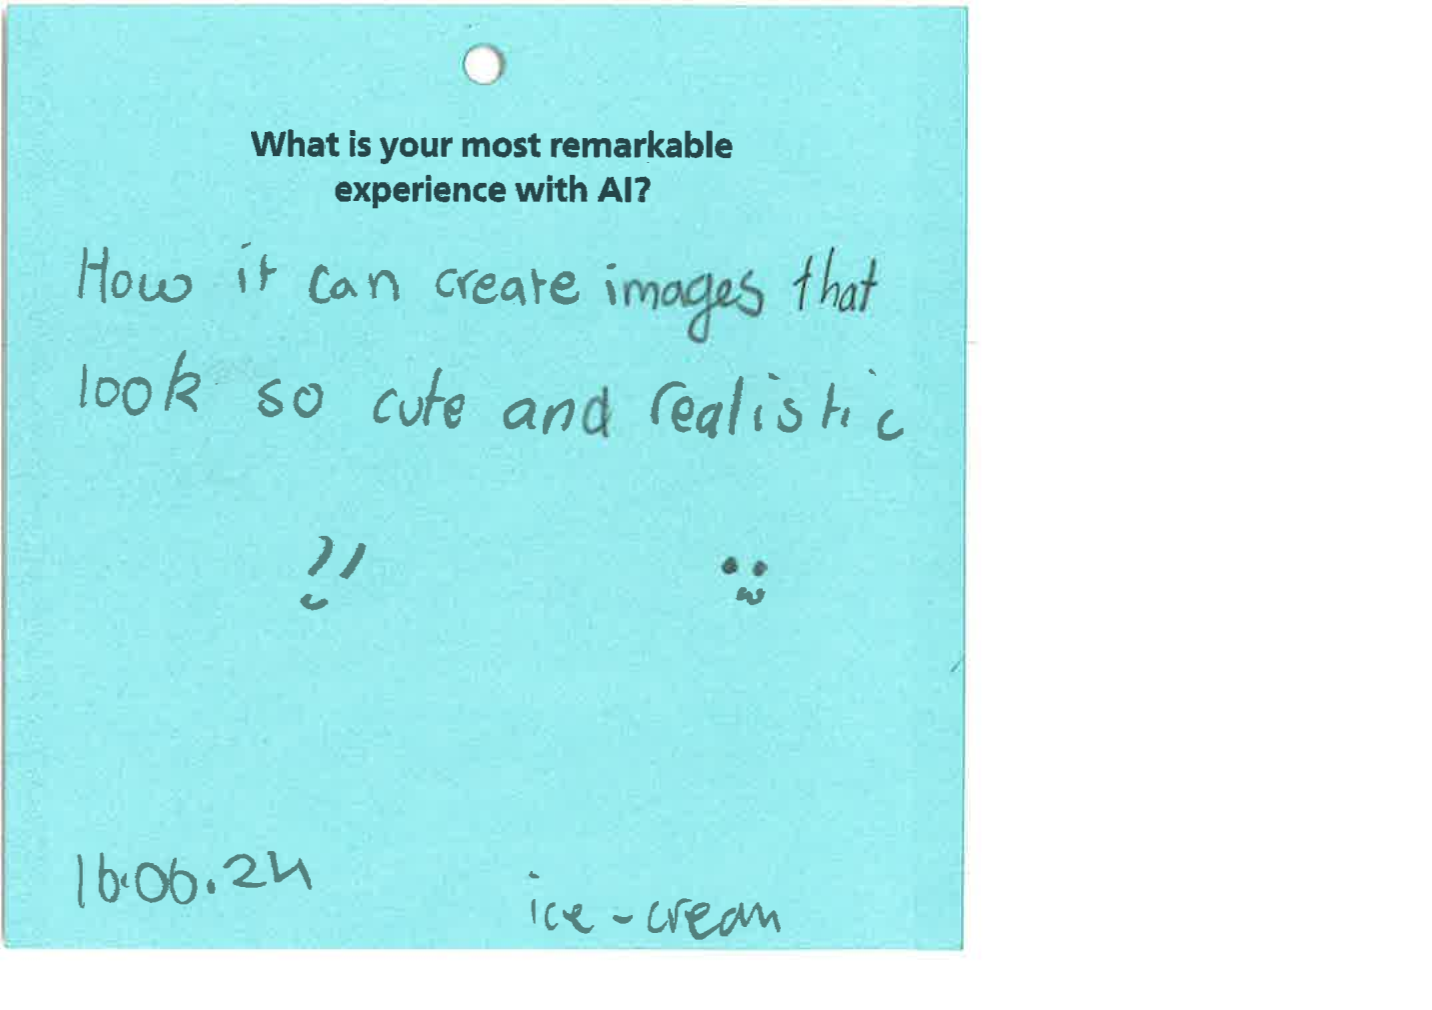 What is your most remarkable
experience with AI?
How it can create images that
look so cute and realistic
16.06.24
ice-cream